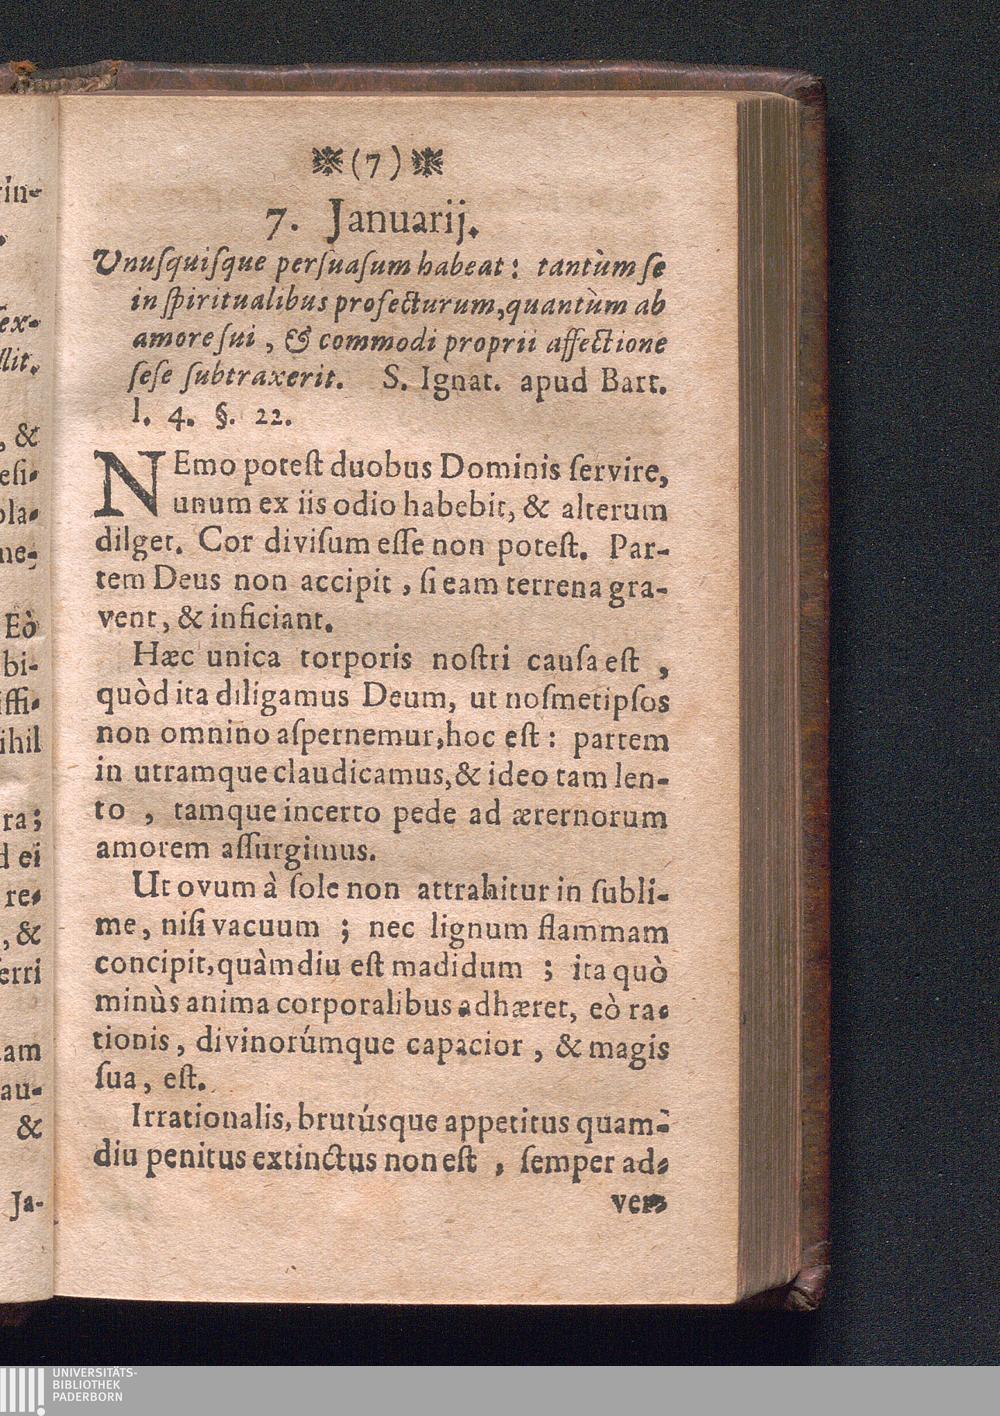 (7)
7. Januarij.
Vnuſquiſque perſuaſum habeat: tantùm ſe
in ſpiritualibus profecturum, quantùm ab
amore ſui, & commodi proprii affectione
ſeſe ſubtraxerit. S. Ignat. apud Bart.
l. 4. §. 22.
NEmo poteſt duobus Dominis ſervire,
unum ex iis odio habebit, & alterum
dilget. Cor diviſum eſſe non poteſt. Par-
tem Deus non accipit, ſi eam terrena gra-
vent, & inficiant.
Hæc unica torporis noſtri cauſa eſt,
quòd ita diligamus Deum, ut noſmetipſos
non omnino aſpernemur, hoc eſt: partem
in utramque claudicamus, & ideo tam len-
to, tamque incerto pede ad æternorum
amorem aſſurgimus.
Ut ovum à ſole non attrahitur in ſubli-
me, niſi vacuum; nec lignum flammam
concipit, quàmdiu eſt madidum; ita quò
minùs anima corporalibus adhæret, eò ra-
tionis, divinorúmque capacior, & magis
ſua, eſt.
Irrationalis, brutúsque appetitus quam-
diu penitus extinctus non eſt, ſemper ad-
ver-
rin-
ex-
llit.
, &
eſi-
ola-
ne-
Eò
bi-
iffi-
ihil
ra;
d ei
re-
, &
erri
am
au-
&
Ja-
UNIVERSITÄTS-
BIBLIOTHEK
PADERBORN